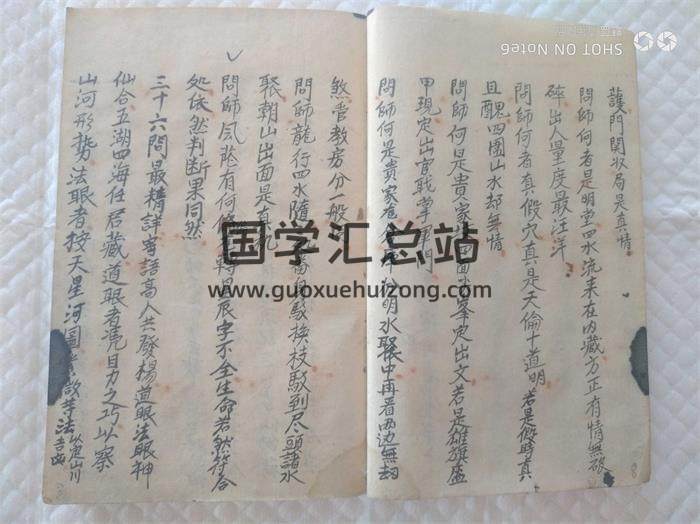 護門関収局是真情
問師何者是明堂四水流来在内藏方正有情無破
碎出人量度最汪洋
問師何者真假穴真是天倫十道明若是假時真
且醜四圍山水却無情
問師何是貴家 面 峯定出文若是雄雄盛
甲現定出官職掌軍門
問師何是貴家 明水聚中再看两边無刼
煞管教房分一般
問師龍行四水隨 換枝駁到尽頭諸水
聚朝山出面是真
問師風 有何 辰字不全生命若然符合
处依然判断果同然
三十六問最精詳 語高人共發楊道眼法眼神
仙合五湖四海任君藏道眼者凴目力之巧以察
山河形勢法眼者按天星河圖 等法以定山川吉凶
国学汇总站
www.guoxuehuizong.com
SHOT ON NOTE6